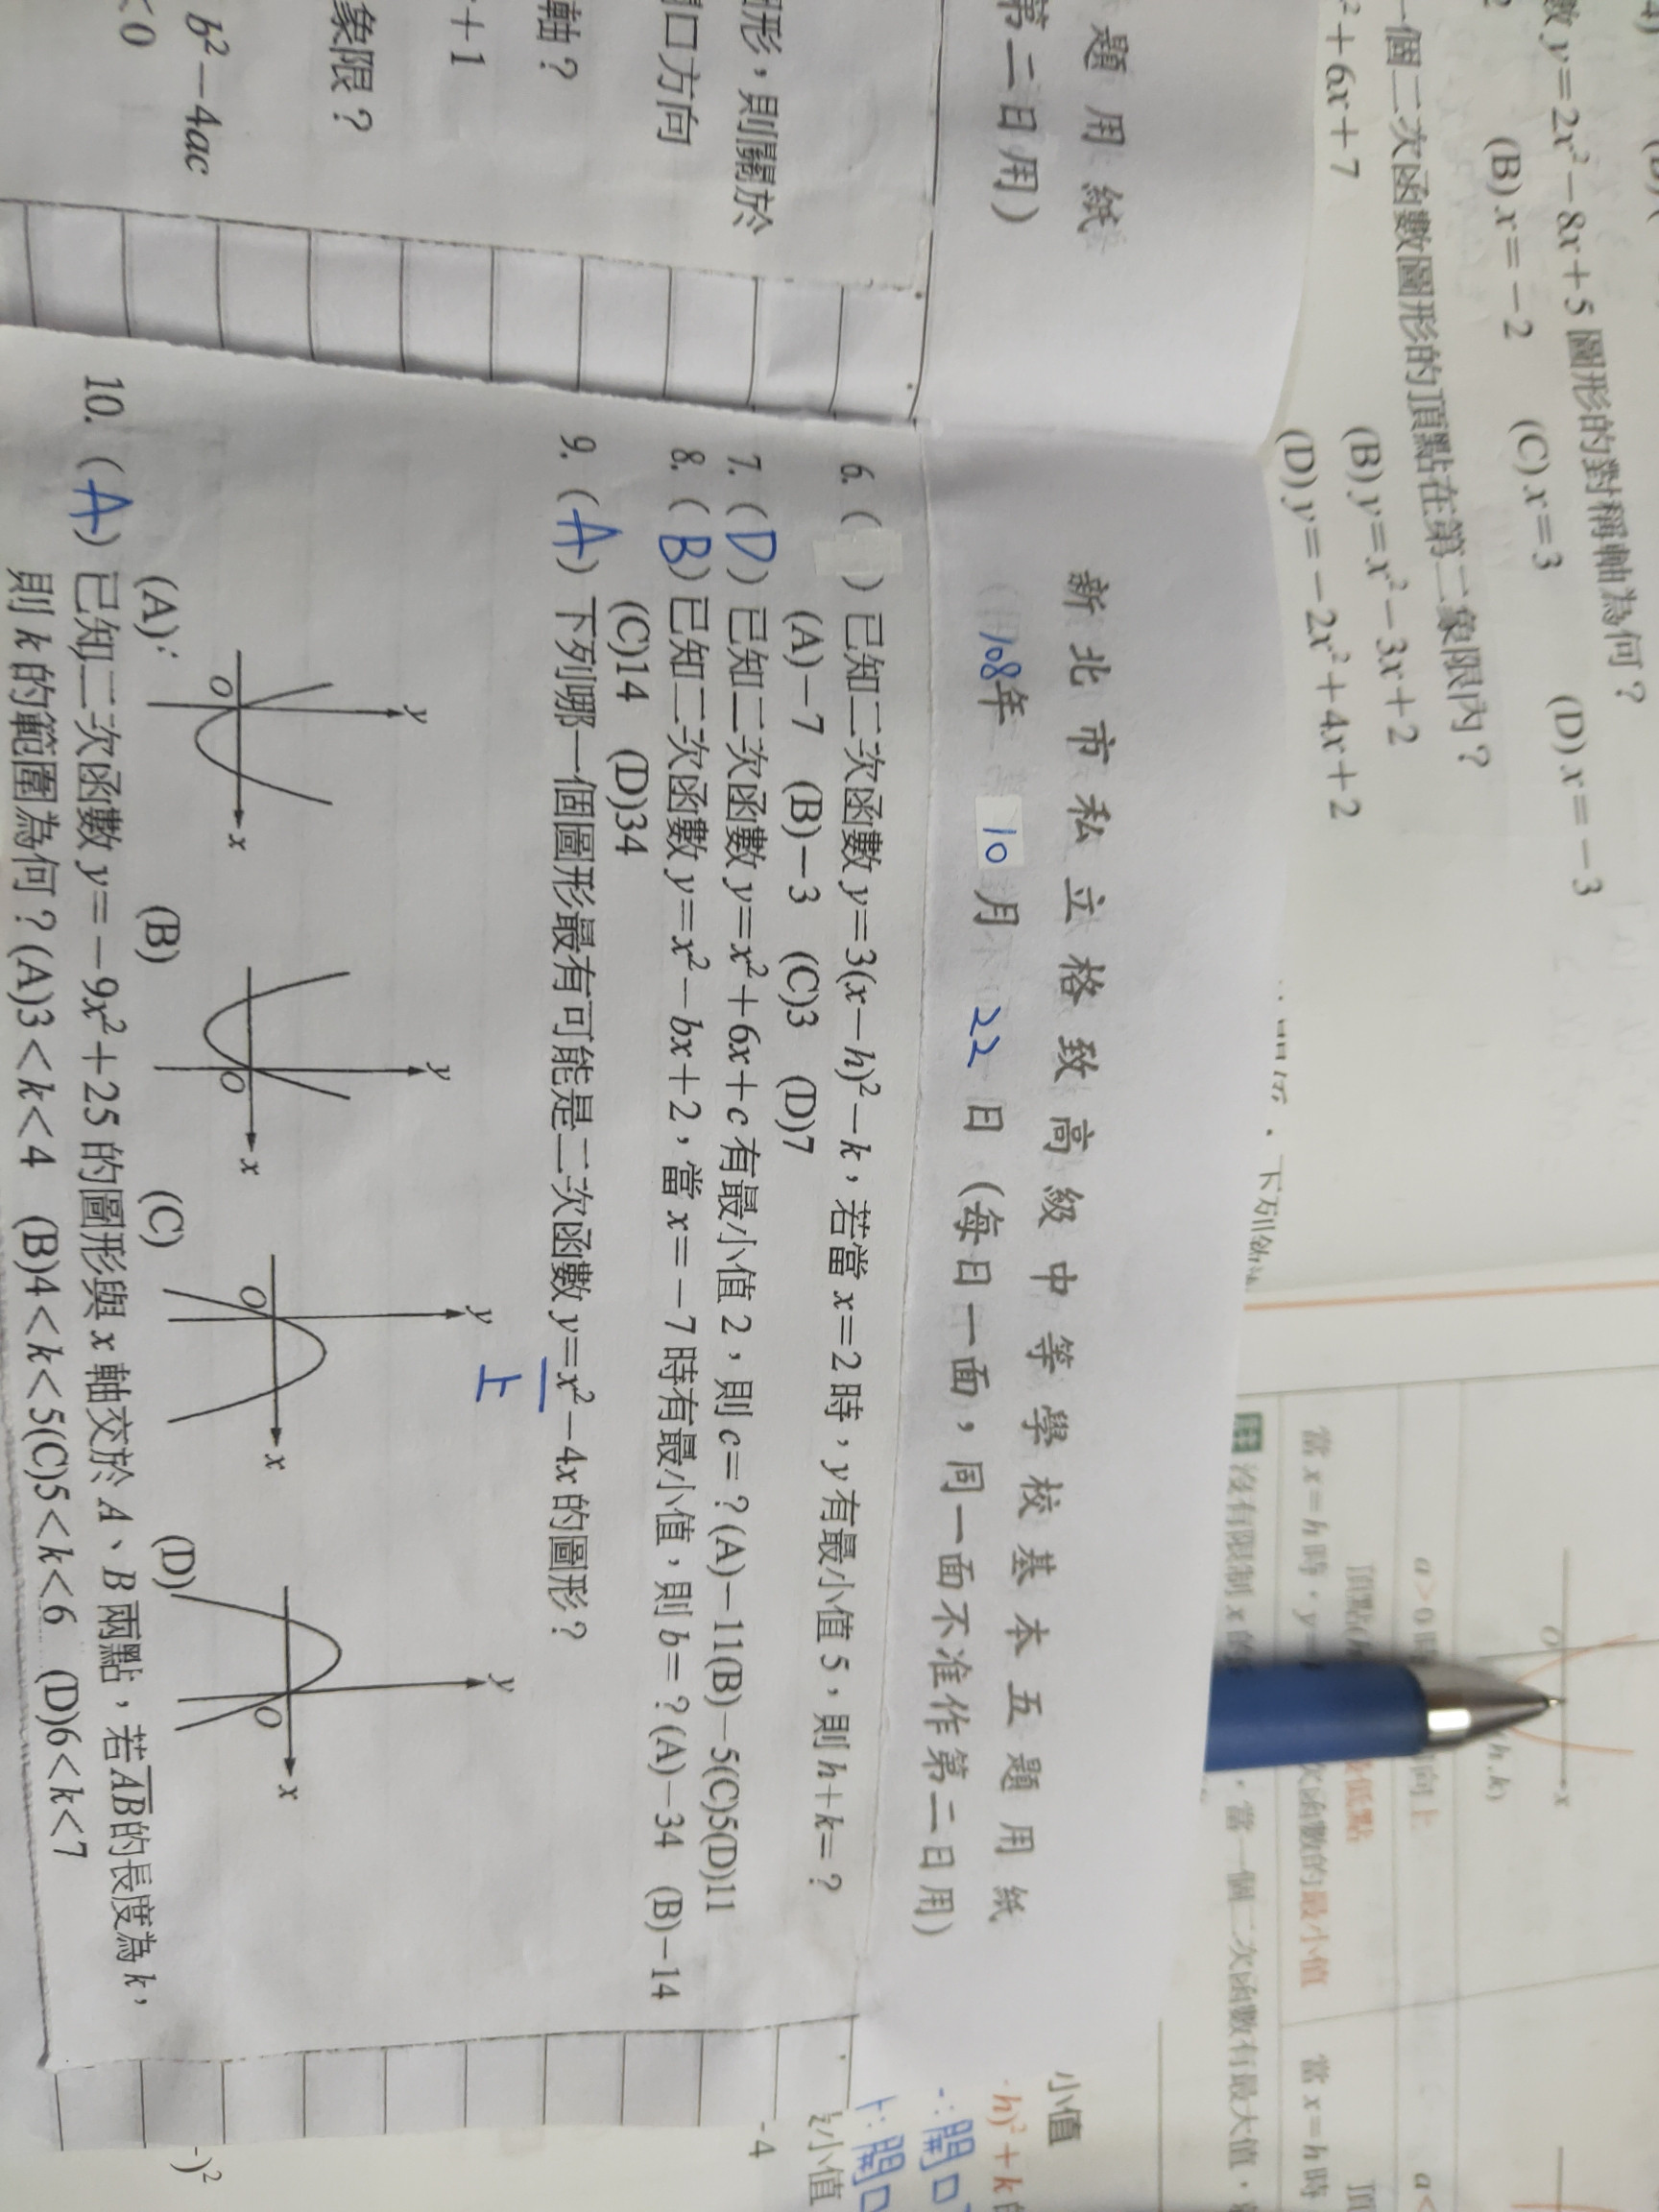 數 y=2x²-8x+5 圖形的對稱軸為何？
(B) x=-2 (C) x=3 (D) x=-3
一個二次函數圖形的頂點在第二象限內？
²+6x+7 (B) y=x²-3x+2
(D) y=-2x²+4x+2
題用紙
第二日用)
形，則關於
口方向
軸？
+1
象限？
b²-4ac
<0
新北市私立格致高級中等學校基本五題用紙
108年 10 月 22 日 (每日一面，同一面不准作第二日用)
6. ( ) 已知二次函數 y=3(x-h)²-k，若當 x=2 時，y 有最小值 5，則 h+k=？
(A)-7 (B)-3 (C)3 (D)7
7. (D) 已知二次函數 y=x²+6x+c 有最小值 2，則 c=？(A)-11(B)-5(C)5(D)11
8. (B) 已知二次函數 y=x²-bx+2，當 x=-7 時有最小值，則 b=？(A)-34 (B)-14
(C)14 (D)34
9. (A) 下列哪一個圖形最有可能是二次函數 y=x²-4x 的圖形？
上
(A) y O x (B) y O x (C) y O x (D) y O x
10. (A) 已知二次函數 y=-9x²+25 的圖形與 x 軸交於 A、B 兩點，若AB的長度為 k，
則 k 的範圍為何？(A)3<k<4 (B)4<k<5(C)5<k<6 (D)6<k<7
O x
h,k)
a>0 時
向上
頂點(h
最低點
當 x=h 時，y
次函數的最小值
沒有限制 x 的
，當一個二次函數有最大值，
a<
當 x=h 時
小值
h)²+k
-:開口
+:開口
小值
-4
-)²